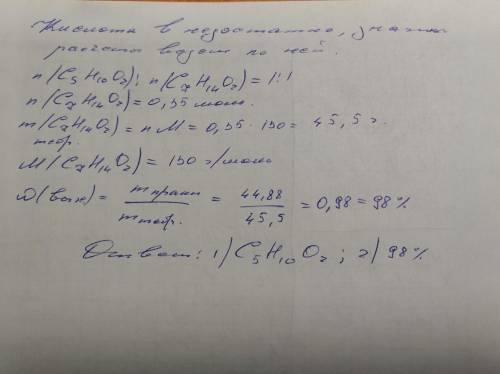 Кислота в недостатке, значит
расчеты ведем по ней.
n(C₅H₁₀O₂) : n(C₇H₁₄O₂) = 1:1
n(C₇H₁₄O₂) = 0,35 моль.
m(C₇H₁₄O₂) = n M = 0,35 · 130 = 45,5 г.
теор.
M(C₇H₁₄O₂) = 130 г/моль
(вых) = m практ / m теор. = 44,88 / 45,5 = 0,98 = 98%
Ответ: 1) C₅H₁₀O₂ ; 2) 98%